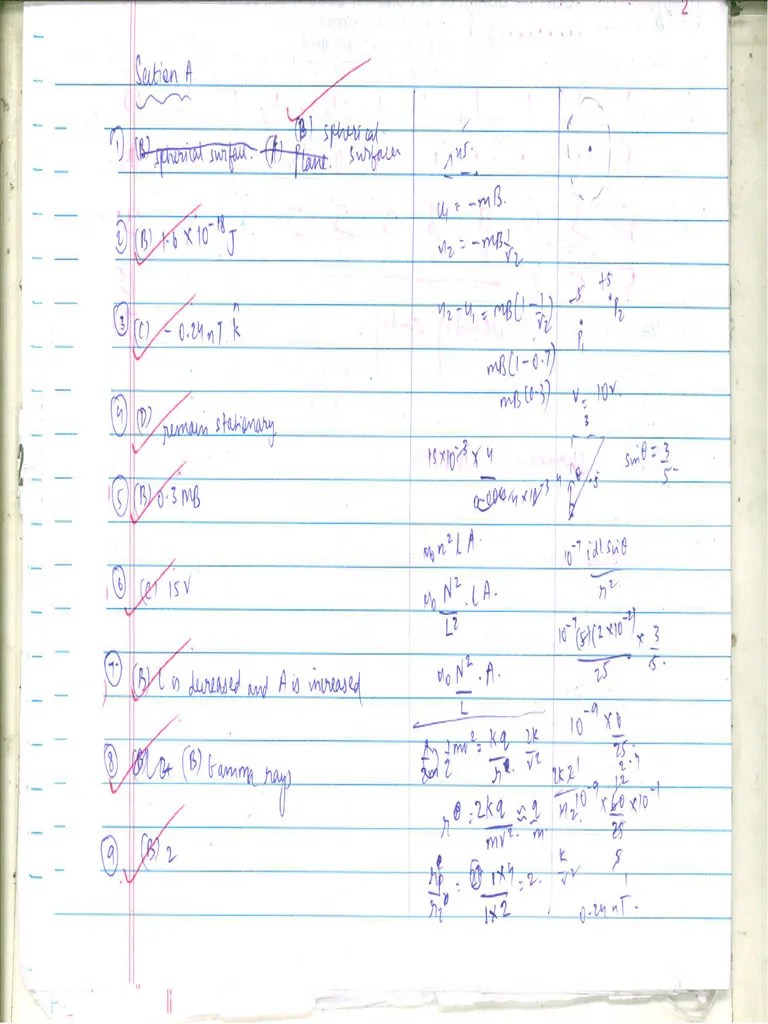 2
Section A
1) (B) spherical surface. (A) plane. (B) spherical surfaces
② (B) 1.6 × 10⁻¹⁸ J
③ (C) - 0.24 nT k̂
④ (D) remain stationary
⑤ (B) 0.3 MB
⑥ (C) 15 V
⑦ (B) L is decreased and A is increased
⑧ (B) Gamma rays
⑨ (B) 2
u₁ = -mB.
u₂ = -mB 1/√2
u₂ - u₁ = mB(1 - 1/√2)
mB(1-0.7)
mB(0.3)
15×10⁻³ × 4
4×10⁻³
μ₀ n² L A.
μ₀ N²/L² . L A.
μ₀ N²/L . A.
½ mv² = kq
2kq/mv² ∝ q/m.
1×4/1×2 = 2.
-5 +5
P₁ P₂
V = 10V.
3
sinθ = 3/5
10⁻⁷ idl sinθ / r²
10⁻⁷ (5)(2×10⁻²)/25 × 3/5.
10⁻⁹ × 6/25
0.24 nT.
2